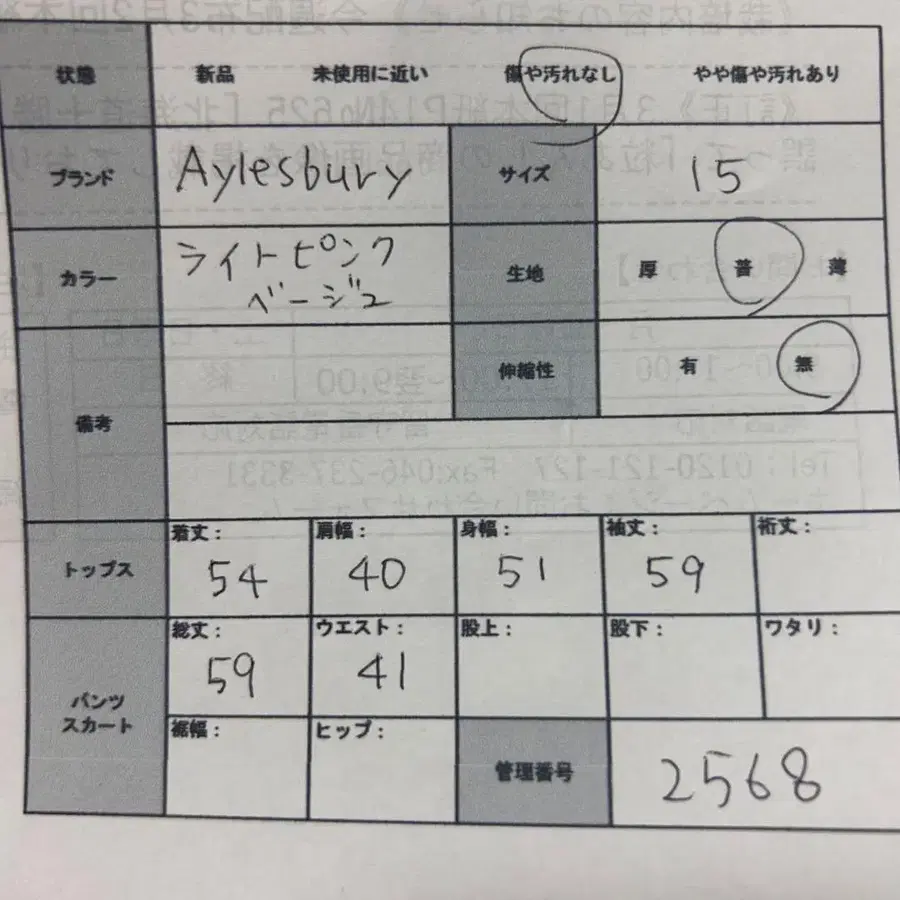 状態 新品 未使用に近い 傷や汚れなし やや傷や汚れあり
ブランド Aylesbury サイズ 15
カラー ライトピンク
ベージュ
生地 厚 普 薄
伸縮性 有 無
備考
トップス 着丈: 54 肩幅: 40 身幅: 51 袖丈: 59 裄丈:
パンツ
スカート
総丈: 59 ウエスト: 41 股上: 股下: ワタリ:
裾幅: ヒップ: 管理番号 2568
Tel:0120-121-127 Fax:046-237-3331